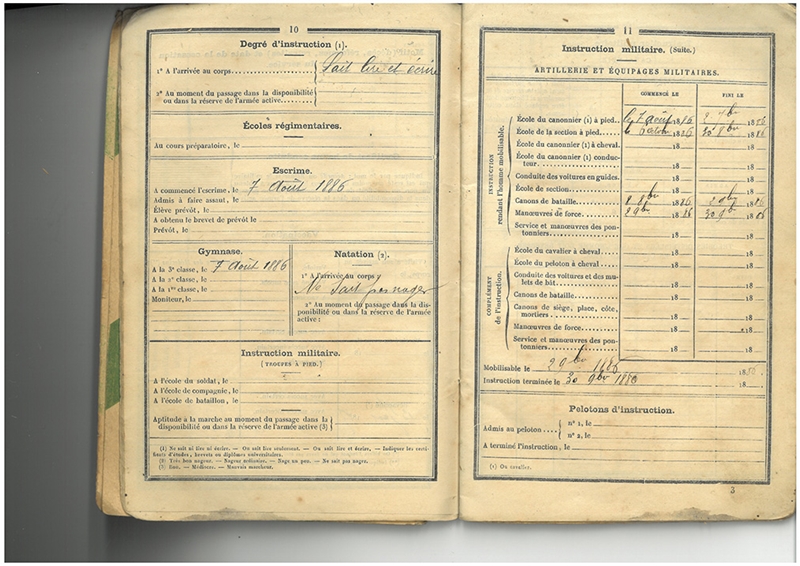 10
Degré d'instruction (1).
1° A l'arrivée au corps Sait lire et écrire
2° Au moment du passage dans la disponibilité
ou dans la réserve de l'armée active
Écoles régimentaires.
Au cours préparatoire, le
Escrime.
A commencé l'escrime, le 7 Août 1886
Admis à faire assaut, le
Élève prévôt, le
A obtenu le brevet de prévôt le
Prévôt, le
Gymnase.
A la 3e classe, le 7 Août 1886
A la 2e classe, le
A la 1re classe, le
Moniteur, le
Natation (2).
1° A l'arrivée au corps
Ne sait pas nager
2° Au moment du passage dans la dis-
ponibilité ou dans la réserve de l'armée
active :
Instruction militaire.
(TROUPES À PIED.)
A l'école du soldat, le
A l'école de compagnie, le
A l'école de bataillon, le
Aptitude à la marche au moment du passage dans la
disponibilité ou dans la réserve de l'armée active (3)
(1) Ne sait ni lire ni écrire. — On sait lire seulement. — On sait lire et écrire. — Indiquer les certi-
ficats d'études, brevets ou diplômes universitaires.
(2) Très bon nageur. — Nageur médiocre. — Nage un peu. — Ne sait pas nager.
(3) Bon. — Médiocre. — Mauvais marcheur.
11
Instruction militaire. (Suite.)
ARTILLERIE ET ÉQUIPAGES MILITAIRES.
COMMENCÉ LE
FINI LE
INSTRUCTION
rendant l'homme mobilisable.
École du canonnier (1) à pied le 7 août 1886 1886
École de la section à pied 1886 30 8bre 1886
École du canonnier (1) à cheval 18 18
École du canonnier (1) conduc-
teur 18 18
Conduite des voitures en guides 18 18
École de section 18 18
Canons de bataille 8 8bre 1886 1886
Manœuvres de force 2 9bre 1886 30 9bre 1886
Service et manœuvres des pon-
tonniers 18 18
COMPLÉMENT
de l'instruction.
École du cavalier à cheval 18 18
École du peloton à cheval 18 18
Conduite des voitures et des mu-
lets de bât 18 18
Canons de bataille 18 18
Canons de siège, place, côte,
mortiers 18 18
Manœuvres de force 18 18
Service et manœuvres des pon-
tonniers 18 18
Mobilisable le 2 9bre 1886 18
Instruction terminée le 30 9bre 1886 18
Pelotons d'instruction.
Admis au peloton
n° 1, le
n° 2, le
A terminé l'instruction, le
(1) Ou cavalier.
3